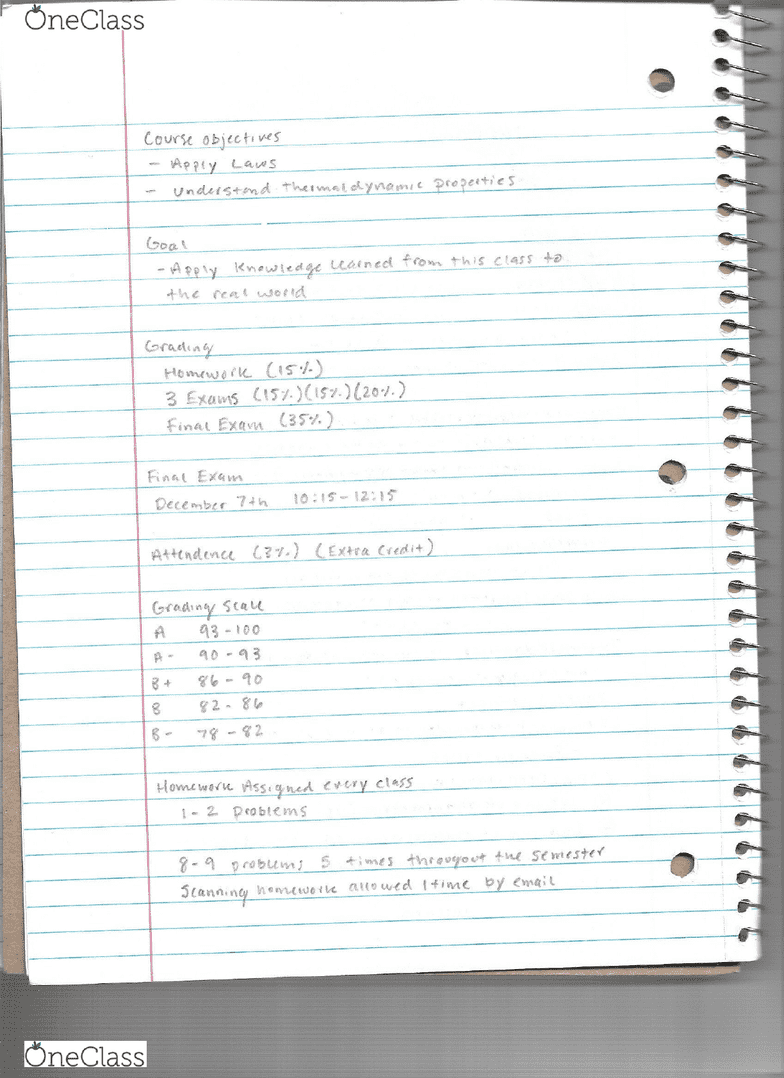 OneClass
Course objectives
- Apply Laws
- Understand thermaldynamic properties
Goal
- Apply knowledge learned from this class to
the real world
Grading
Homework (15%)
3 Exams (15%)(15%)(20%)
Final Exam (35%)
Final Exam
December 7th 10:15-12:15
Attendence (3%) (Extra Credit)
Grading Scale
A 93-100
A- 90-93
B+ 86-90
B 82-86
B- 78-82
Homework Assigned every class
1-2 problems
8-9 problems 5 times througout the semester
Scanning homework allowed 1 time by email
OneClass